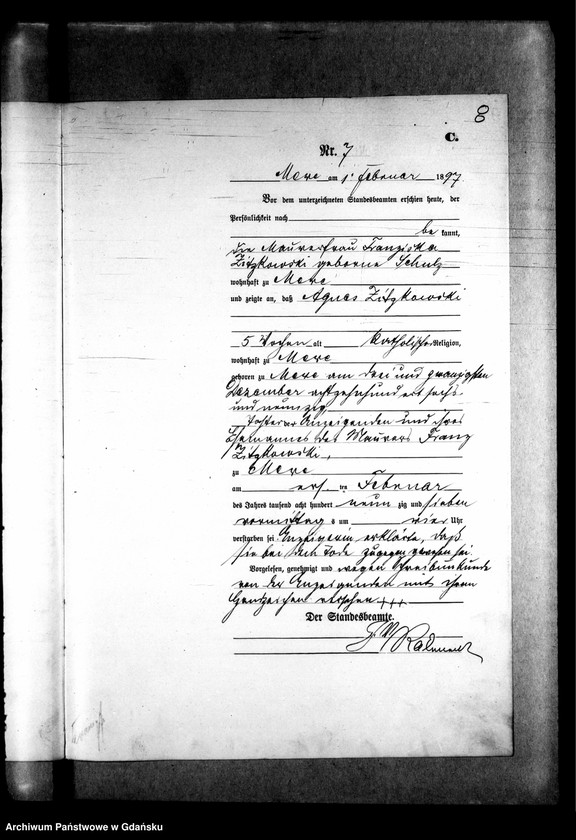 8
C.
Nr. 7
Mewe am 1. Februar 1897
Vor dem unterzeichneten Standesbeamten erschien heute, der
Persönlichkeit nach
be kannt,
die Maurerfrau Franziska
Zitzkowski geborene Schulz
wohnhaft zu Mewe
und zeigte an, daß Agnes Zitzkowski
5 Wochen alt katholischer Religion,
wohnhaft zu Mewe
geboren zu Mewe am drei und zwanzigsten
Dezember achtzehnhundert sechs
und neunzig
Tochter der Anzeigenden und ihres
Ehemannes des Maurers Franz
Zitzkowski,
zu Mewe
am ersten Februar
des Jahres tausend acht hundert neun zig und sieben
vormittag s um vier Uhr
verstorben sei. Anzeigerin erklärte, daß
sie bei dem Tode zugegen gewesen sei.
Vorgelesen, genehmigt und wegen Schreibunkunde
von der Anzeigenden mit ihrem
Handzeichen versehen +++
Der Standesbeamte.
Archiwum Państwowe w Gdańsku